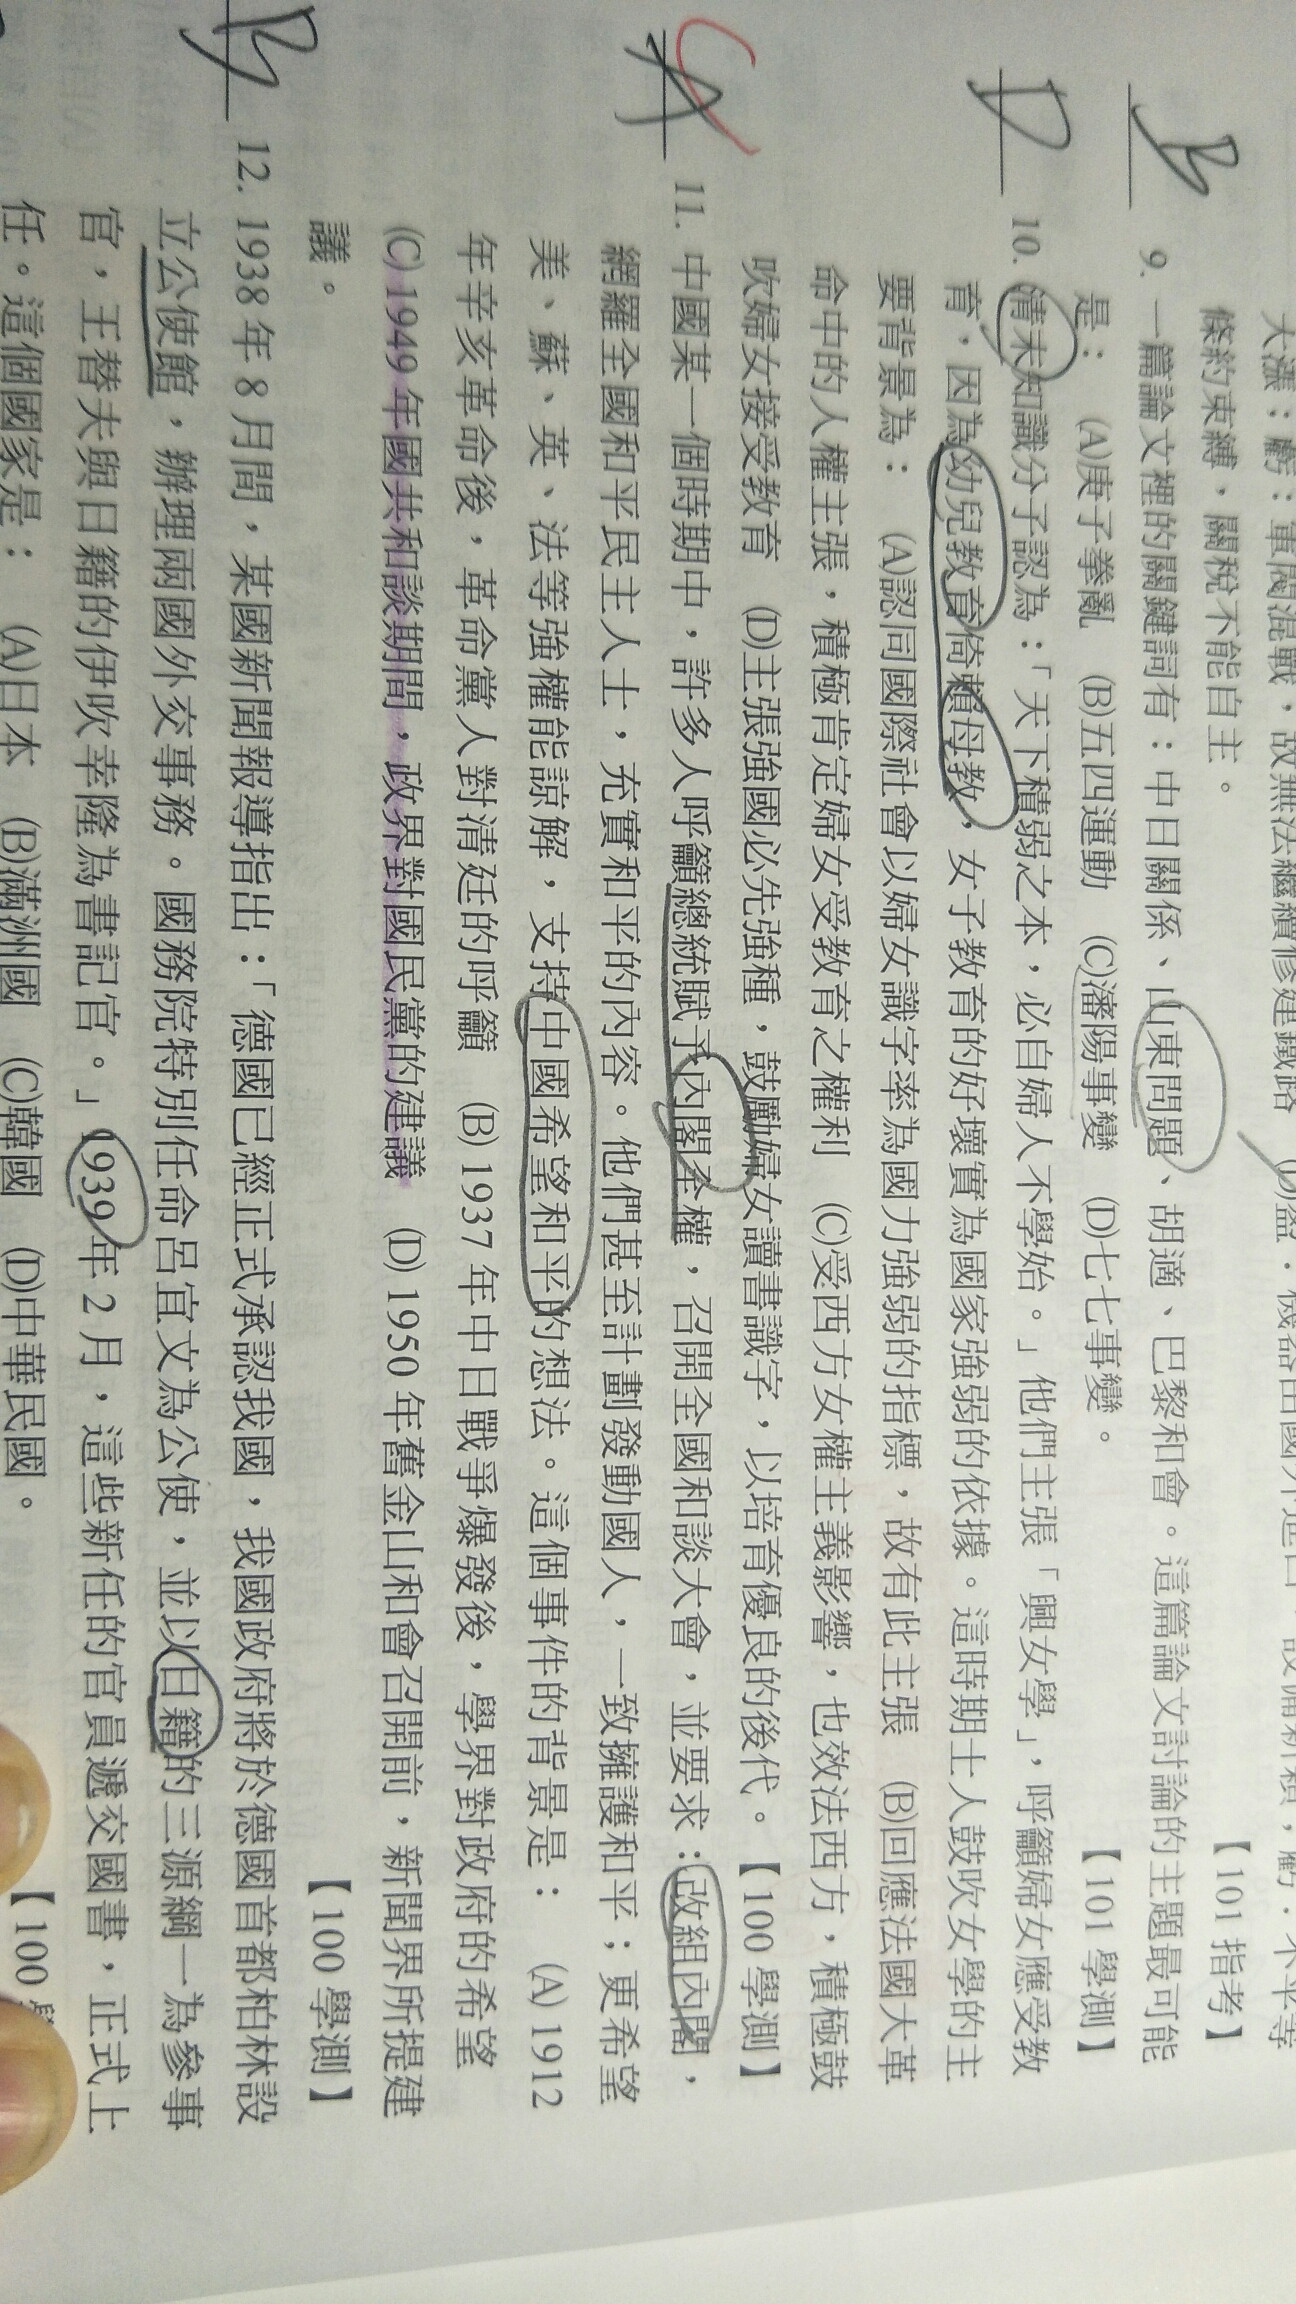 大漲；虧：軍閥混戰，故無法繼續修建鐵路
條約束縛，關稅不能自主。 【101 指考】
B 9. 一篇論文裡的關鍵詞有：中日關係、山東問題、胡適、巴黎和會。這篇論文討論的主題最可能
是： (A)庚子拳亂 (B)五四運動 (C)瀋陽事變 (D)七七事變。 【101 學測】
D 10. 清末知識分子認為：「天下積弱之本，必自婦人不學始。」他們主張「興女學」，呼籲婦女應受教
育，因為幼兒教育倚賴母教，女子教育的好壞實為國家強弱的依據。這時期士人鼓吹女學的主
要背景為： (A)認同國際社會以婦女識字率為國力強弱的指標，故有此主張 (B)回應法國大革
命中的人權主張，積極肯定婦女受教育之權利 (C)受西方女權主義影響，也效法西方，積極鼓
吹婦女接受教育 (D)主張強國必先強種，鼓勵婦女讀書識字，以培育優良的後代。 【100 學測】
C A 11. 中國某一個時期中，許多人呼籲總統賦予內閣全權，召開全國和談大會，並要求：改組內閣，
網羅全國和平民主人士，充實和平的內容。他們甚至計劃發動國人，一致擁護和平；更希望
美、蘇、英、法等強權能諒解，支持中國希望和平的想法。這個事件的背景是： (A) 1912
年辛亥革命後，革命黨人對清廷的呼籲 (B) 1937 年中日戰爭爆發後，學界對政府的希望
(C) 1949 年國共和談期間，政界對國民黨的建議 (D) 1950 年舊金山和會召開前，新聞界所提建
議。 【100 學測】
B 12. 1938 年 8 月間，某國新聞報導指出：「德國已經正式承認我國，我國政府將於德國首都柏林設
立公使館，辦理兩國外交事務。國務院特別任命呂宜文為公使，並以日籍的三源綱一為參事
官，王替夫與日籍的伊吹幸隆為書記官。」1939 年 2 月，這些新任的官員遞交國書，正式上
任。這個國家是： (A)日本 (B)滿洲國 (C)韓國 (D)中華民國。 【100